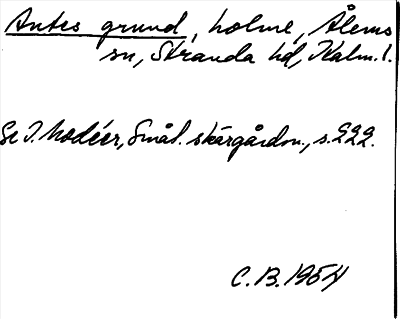 Antes grund, holme, Ålems
sn, Stranda hd, Kalm. l.
Se I. Modéer, Smål. skärgårdsn., s. 222.
C.B. 1954